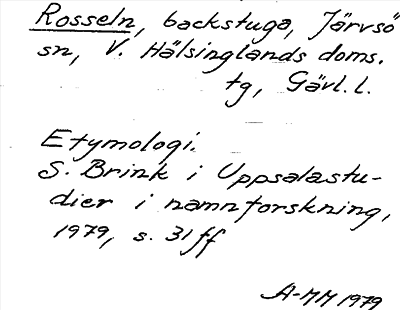 Rosseln, backstuga, Järvsö
sn, V. Hälsinglands doms.
tg, Gävl. l.
Etymologi.
S. Brink i Uppsalastu-
dier i namnforskning,
1979, s. 31 ff
A-MM 1979